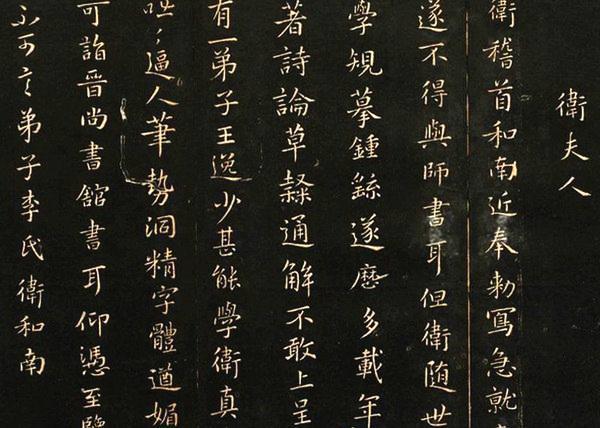 衛夫人
衛稽首和南近奉勅寫急就
遂不得與師書耳但衛随世
學規摹鍾繇遂歷多載年
著詩論草隸通解不敢上呈
有一弟子王逸少甚能學衛真
咄〻逼人筆勢洞精字體遒媚
可詣晉尚書館書耳仰憑至鑒
不可言弟子李氏衛和南